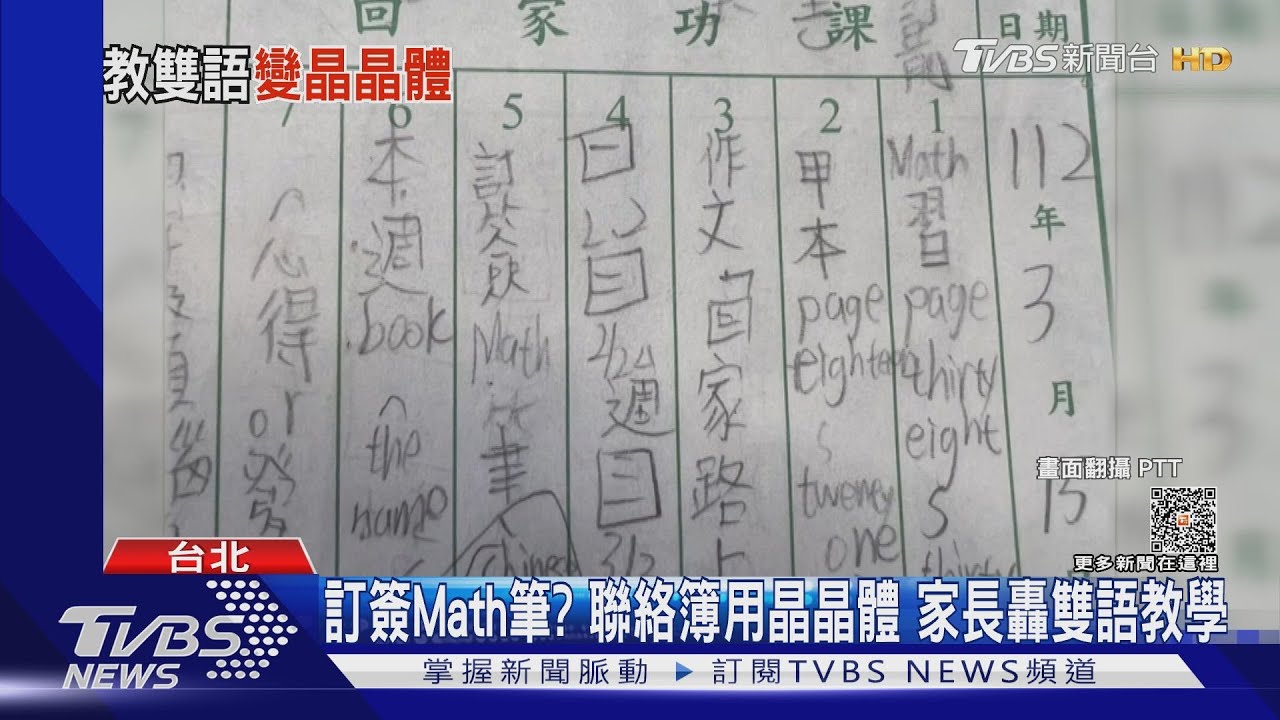 TVBS新聞台 HD
教雙語變晶晶體
回家功課
日期
112
年
3
月
15
1
Math
習
page
thirty
eight
S
2
甲
本
page
eighteen
S
twenty
one
3
作
文
家
路
上
4
日
2/24
週
三
3/2
5
訂
簽
Math
筆
Chinese
6
本
週
book
the
name
7
心
得
or
畫面翻攝 PTT
更多新聞在這裡
台北
TVBS
NEWS
訂簽Math筆? 聯絡簿用晶晶體 家長轟雙語教學
掌握新聞脈動 ▶ 訂閱TVBS NEWS頻道